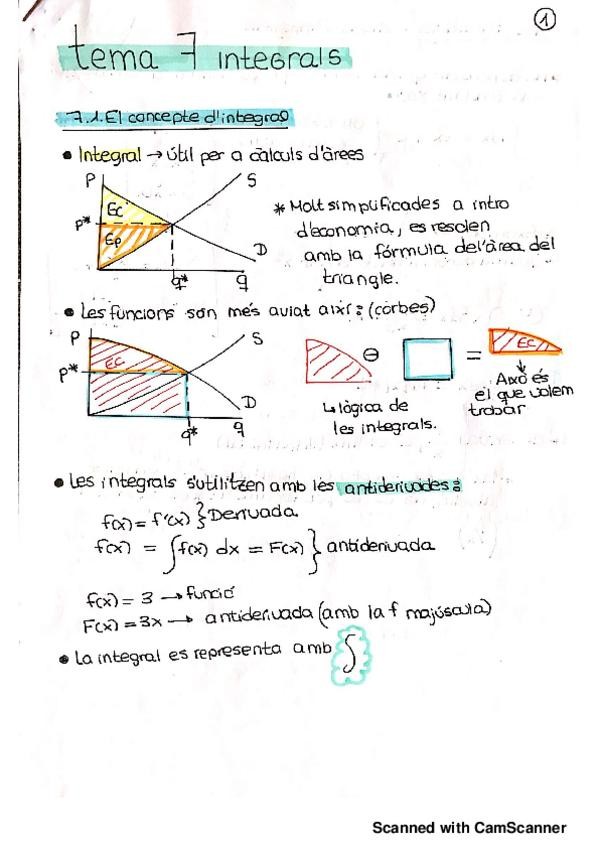 1
tema 7 integrals
7.1. El concepte d'integral
• Integral → útil per a càlculs d'àrees
P S
EC
P*
EP
D
q* q
* Molt simplificades a intro
d'economia, es resolen
amb la fórmula del'àrea del
triangle.
• Les funcions son més aviat així: (corbes)
P S
EC
P*
D
q* q
⊖ = EC
↳ lògica de
les integrals.
↓
Això és
el que volem
trobar
• Les integrals s'utilitzen amb les antiderivades:
f(x) = f'(x) } Derivada
f(x) = ∫f(x) dx = F(x) } antiderivada
f(x) = 3 → funció
F(x) = 3x → antiderivada (amb la f majúscula)
• La integral es representa amb ∫
Scanned with CamScanner